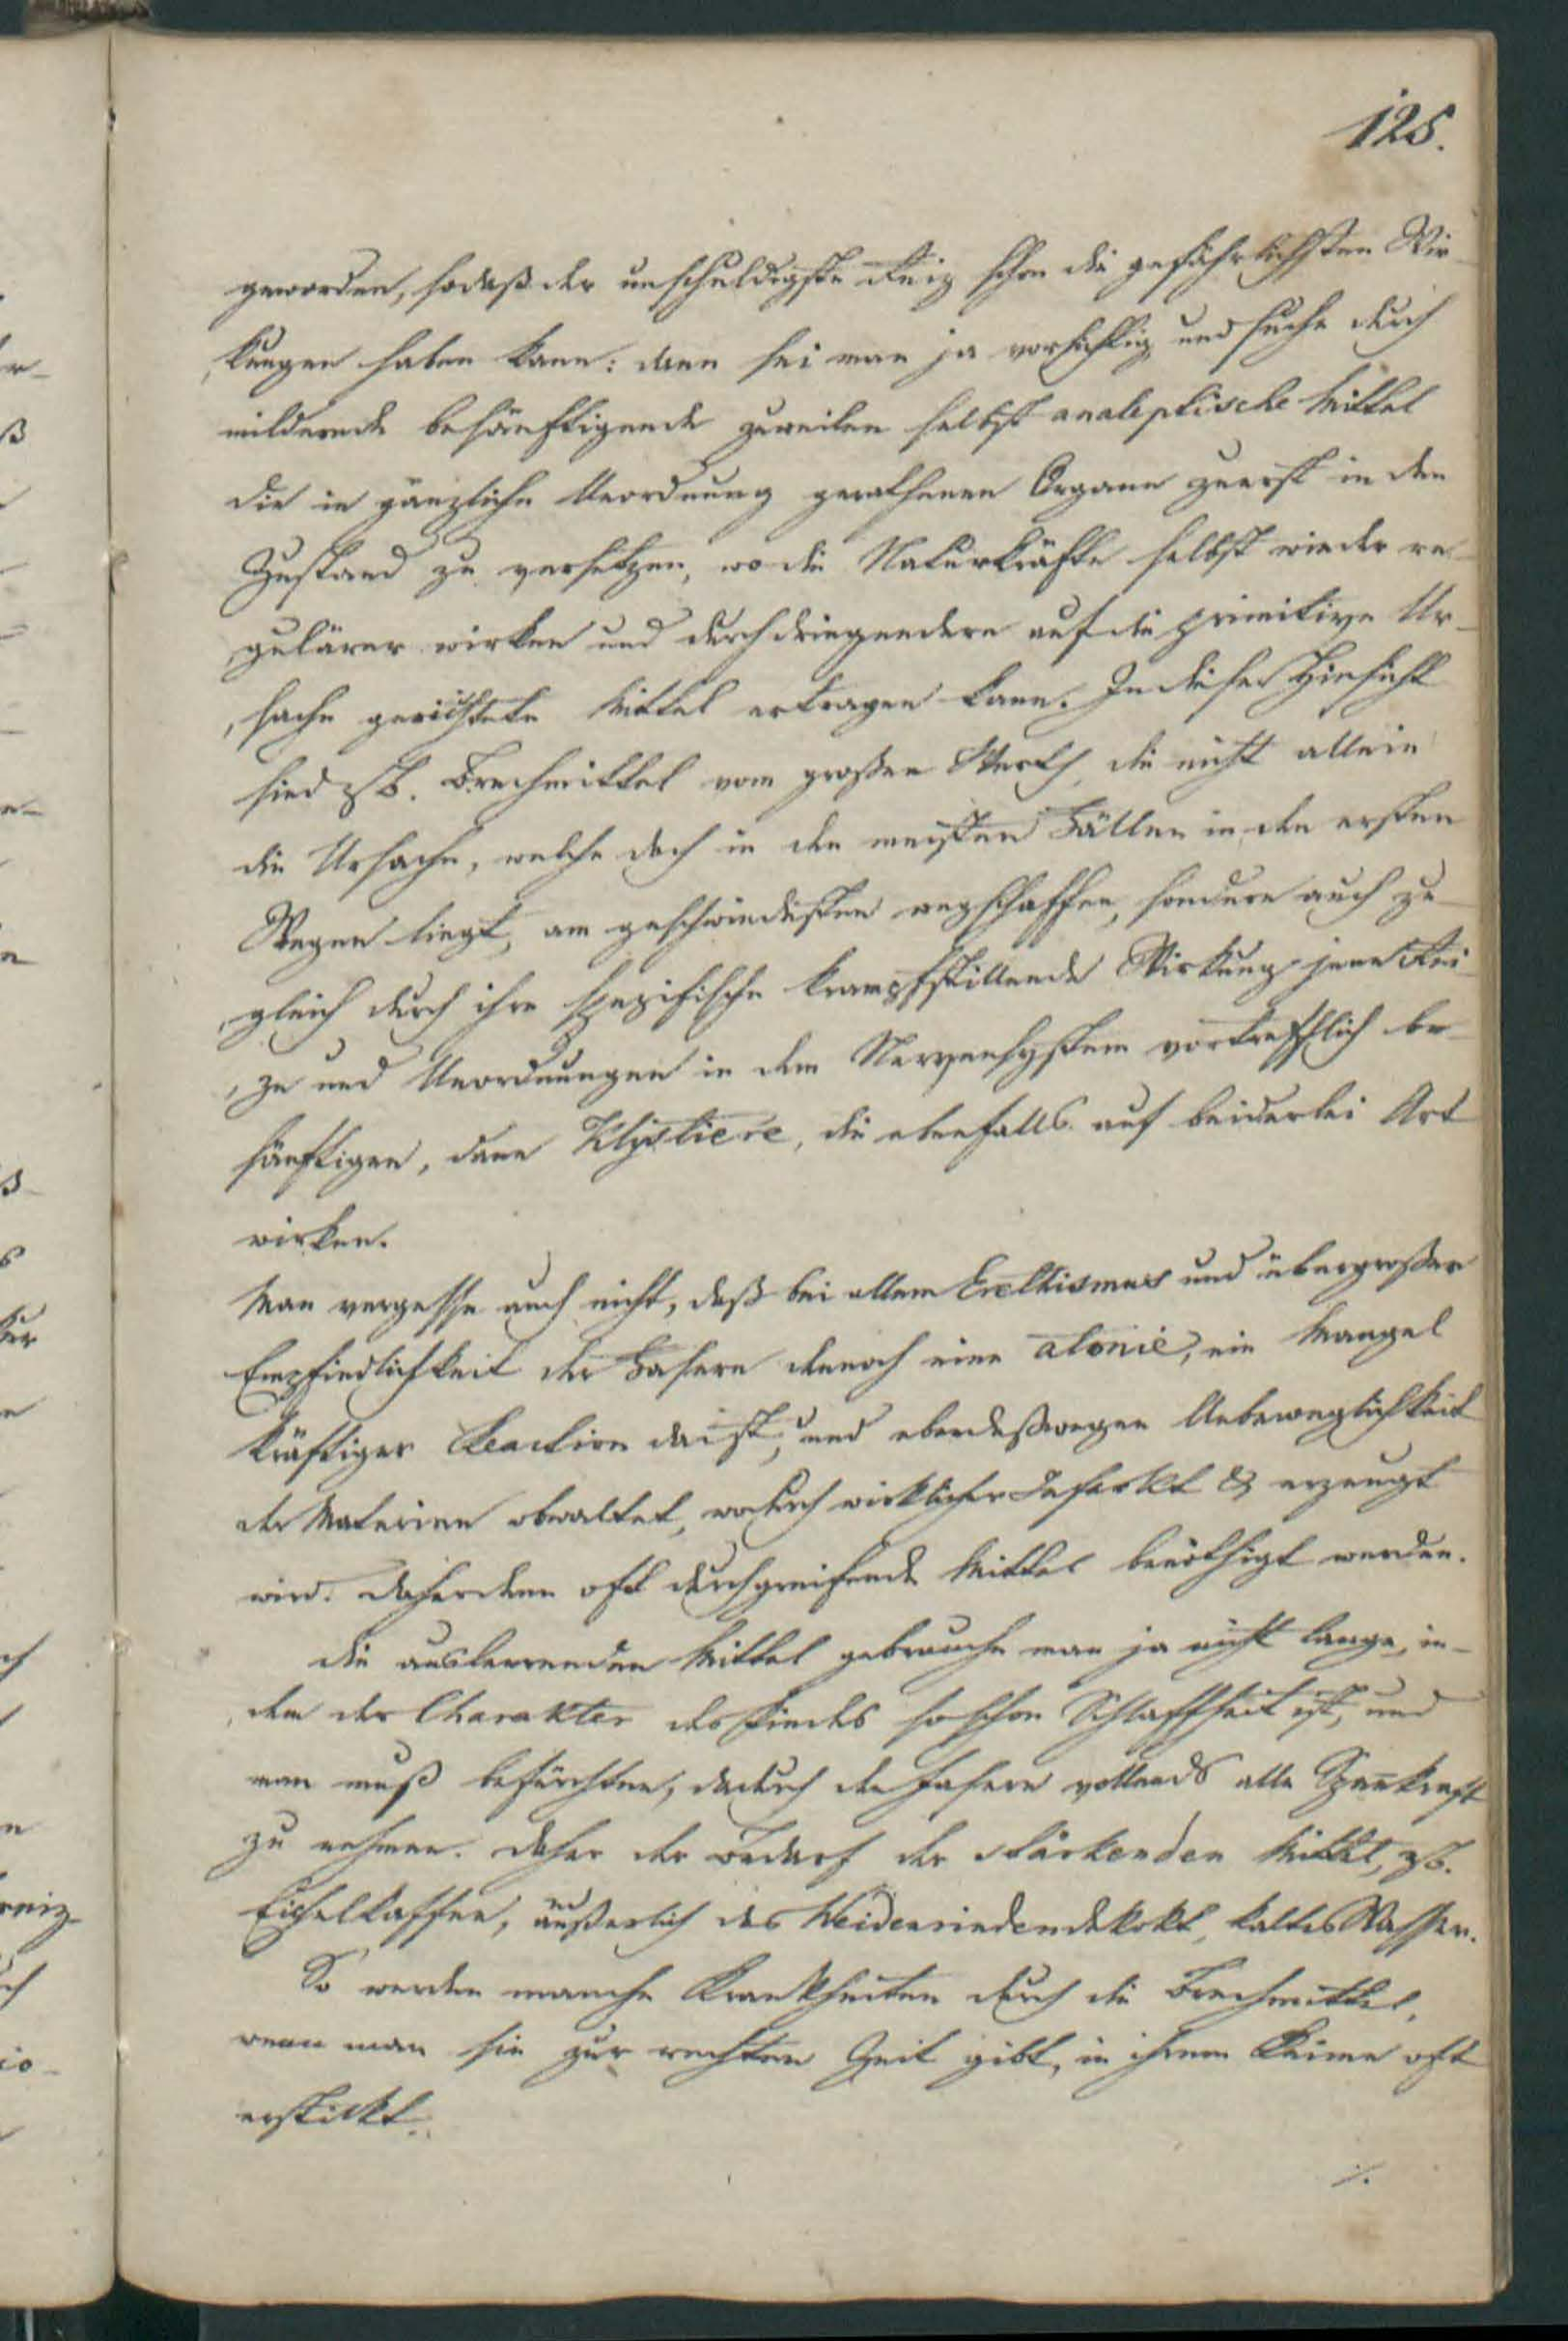 125.
geworden, sodaß der unschuldigste Reiz schon die gefährlichsten Wir-
kungen haben kann: dann sei man ja vorsichtig und suche durch
mildernde besänftigende zuweilen selbst analeptische Mittel
die in gänzliche Unordnung gerathenen Organe zuerst in den
Zustand zu versetzen, wo die Naturkräfte selbst wieder re-
gulärer wirken und durchdringendere auf die primitive Ur-
sache gerichtete Mittel ertragen kann. In dieser Hinsicht
sind zB. Brechmittel vom großen Werth, die nicht allein
die Ursache, welche doch in den meisten Fällen in den ersten
Wegen liegt, am geschwindesten wegschaffen, sondern auch zu-
gleich durch ihre spezifische krampfstillende Wirkung jene Rei-
ze und Unordnungen in dem Nervensystem vortrefflich be-
sänftigen, dann Klystiere, die ebenfalls auf beiderlei Art
wirken.
Man vergesse auch nicht, daß bei allem Erethismus und übergroßer
Empfindlichkeit der Fasern dennoch eine atonie, ein Mangel
kräftiger Reaction da ist, und ebendeßwegen Unbeweglichkeit
der Materien obwaltet, wodurch wirklicher Infarkt & erzeugt
wird. Daher denn oft durchgreifende Mittel benöthigt werden.
Die ausleerenden Mittel gebrauche man ja nicht lange, in-
dem der Charakter des Kindes so schon Schlaffheit ist, und
man muß befürchten, dadurch den Fasern vollends alle Spannkraft
zu nehmen. Daher der Bedarf der stärkenden Mittel, zB.
Eichelkaffee, äußerlich das Weidenrindendekokt, kaltes Wasser.
So werden manche Krankheiten durch die Brechmittel,
wenn man sie zur rechten Zeit gibt, in ihrem Keime oft
erstickt.
./.